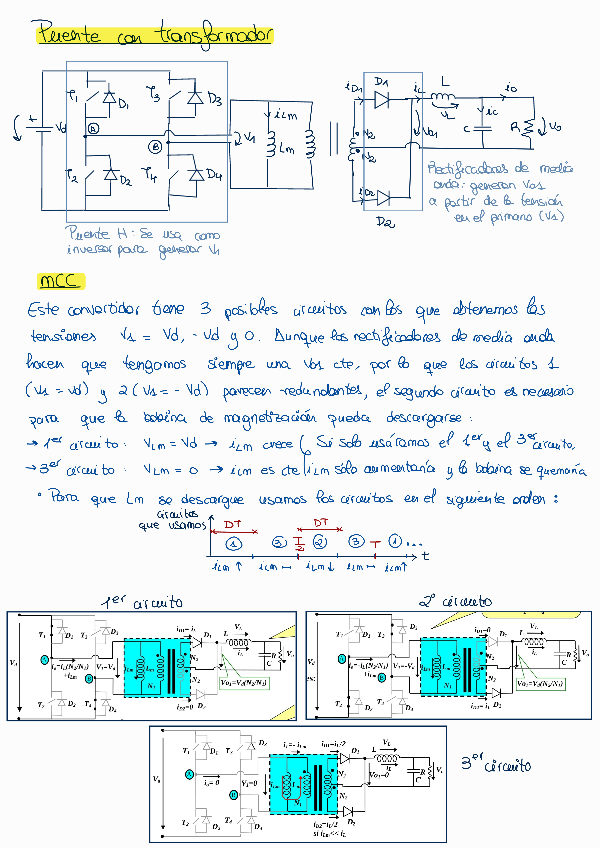 Puente con transformador
T1 D1 T3 D3
A
B
T2 D2 T4 D4
+ Vd
V1
iLm
Lm
iD1 D1 iL L io
VL
V2
V2
Vo1
iC
C R Vo
iD2
D2
Puente H: Se usa como
inversor para generar V1
Rectificadores de media
onda: generan Vo1
a partir de la tensión
en el primario (V1)
MCC
Este convertidor tiene 3 posibles circuitos con los que obtenemos las
tensiones V1 = Vd, -Vd y 0. Aunque los rectificadores de media onda
hacen que tengamos siempre una Vo1 cte, por lo que los circuitos 1
(V1 = Vd) y 2 (V1 = -Vd) parecen redundantes, el segundo circuito es necesario
para que la bobina de magnetización pueda descargarse:
→ 1er circuito: VLm = Vd → iLm crece ( Si solo usáramos el 1er y el 3er circuito
→ 3er circuito: VLm = 0 → iLm es cte ( iLm sólo aumentaría y la bobina se quemaría
• Para que Lm se descargue usamos los circuitos en el siguiente orden:
circuitos
que usamos
DT DT
1 3 T/2 2 3 T 1 ...
t
iLm ↑ iLm — iLm ↓ iLm — iLm ↑
1er circuito
2º circuito
Vo1=Vd(N2/N1)
Vo1=Vd(N2/N1)
3er circuito
V1=0
Vo1=0
iD2=iL/2
si iLm << iL